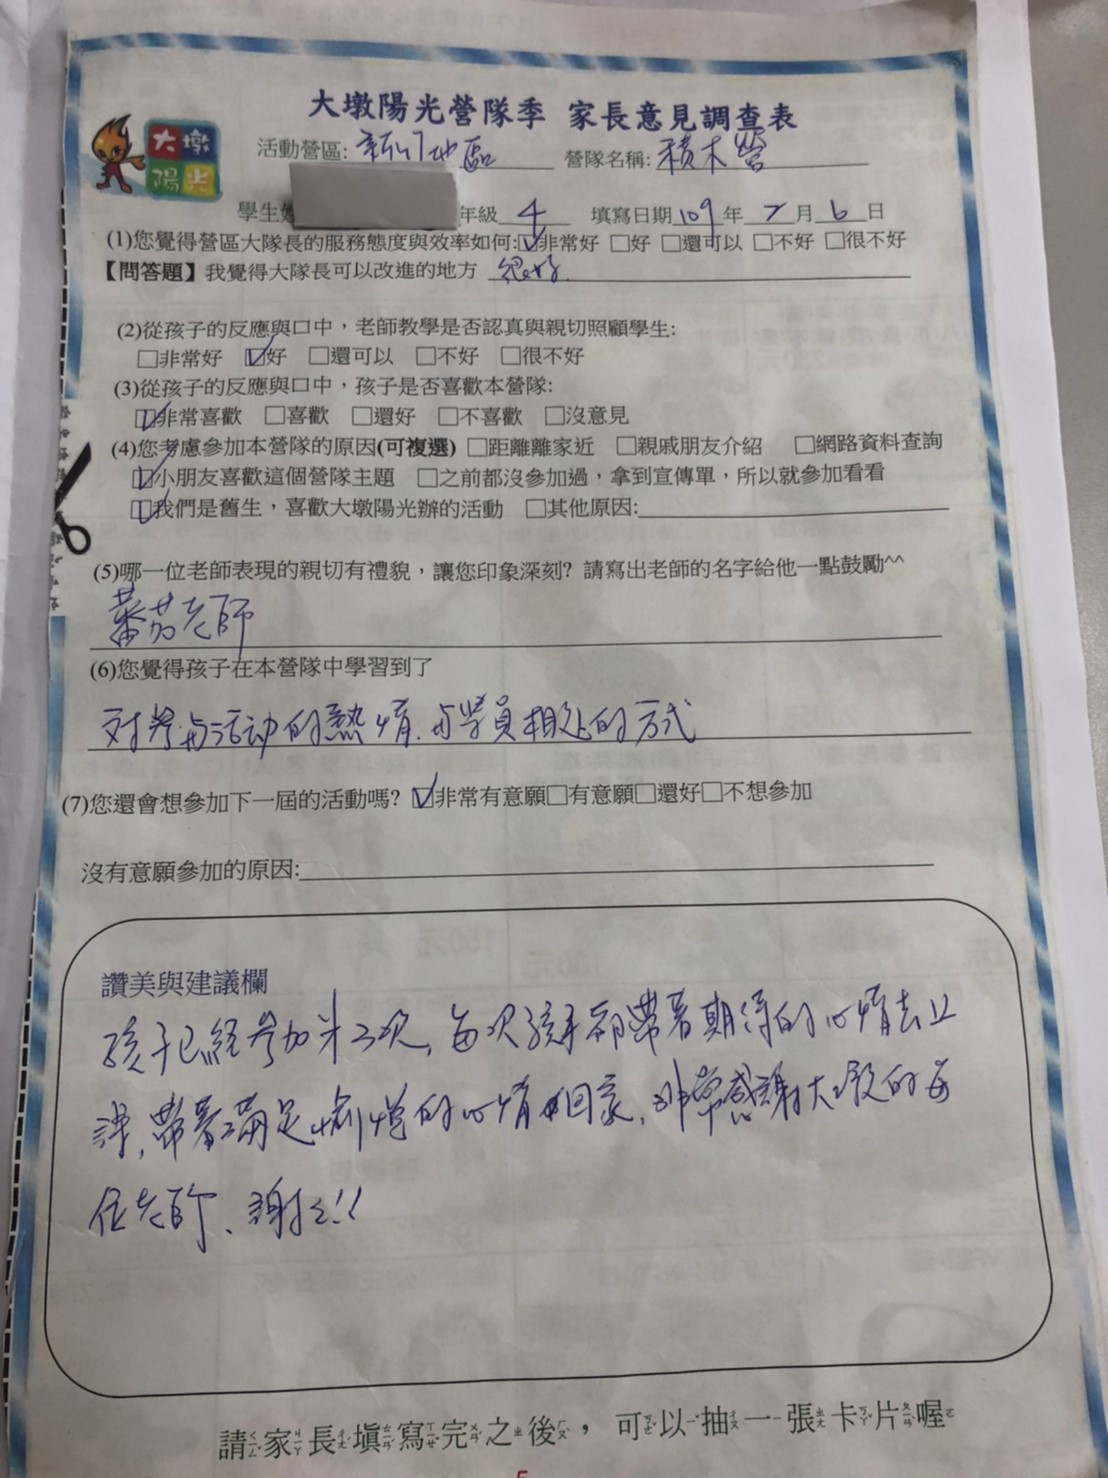 大墩陽光營隊季 家長意見調查表
大墩
陽光
活動營區: 新竹地區 營隊名稱: 積木營
學生姓 年級 4 填寫日期 109 年 2 月 6 日
(1)您覺得營區大隊長的服務態度與效率如何:☑非常好 □好 □還可以 □不好 □很不好
【問答題】我覺得大隊長可以改進的地方 很好.
(2)從孩子的反應與口中，老師教學是否認真與親切照顧學生:
□非常好 ☑好 □還可以 □不好 □很不好
(3)從孩子的反應與口中，孩子是否喜歡本營隊:
☑非常喜歡 □喜歡 □還好 □不喜歡 □沒意見
(4)您考慮參加本營隊的原因(可複選) □距離離家近 □親戚朋友介紹 □網路資料查詢
☑小朋友喜歡這個營隊主題 □之前都沒參加過，拿到宣傳單，所以就參加看看
☑我們是舊生，喜歡大墩陽光辦的活動 □其他原因:
(5)哪一位老師表現的親切有禮貌，讓您印象深刻? 請寫出老師的名字給他一點鼓勵^^
蕃茄老師
(6)您覺得孩子在本營隊中學習到了
對參與活動的熱情、與學員相處的方式
(7)您還會想參加下一屆的活動嗎? ☑非常有意願□有意願□還好□不想參加
沒有意願參加的原因:
讚美與建議欄
孩子已經參加 次, 每次孩子都帶著期待的心情去上
課, 帶著滿足 的心情回家, 非常感謝大墩的每
位老師、謝謝!!
請家長填寫完之後， 可以抽一張卡片喔
5